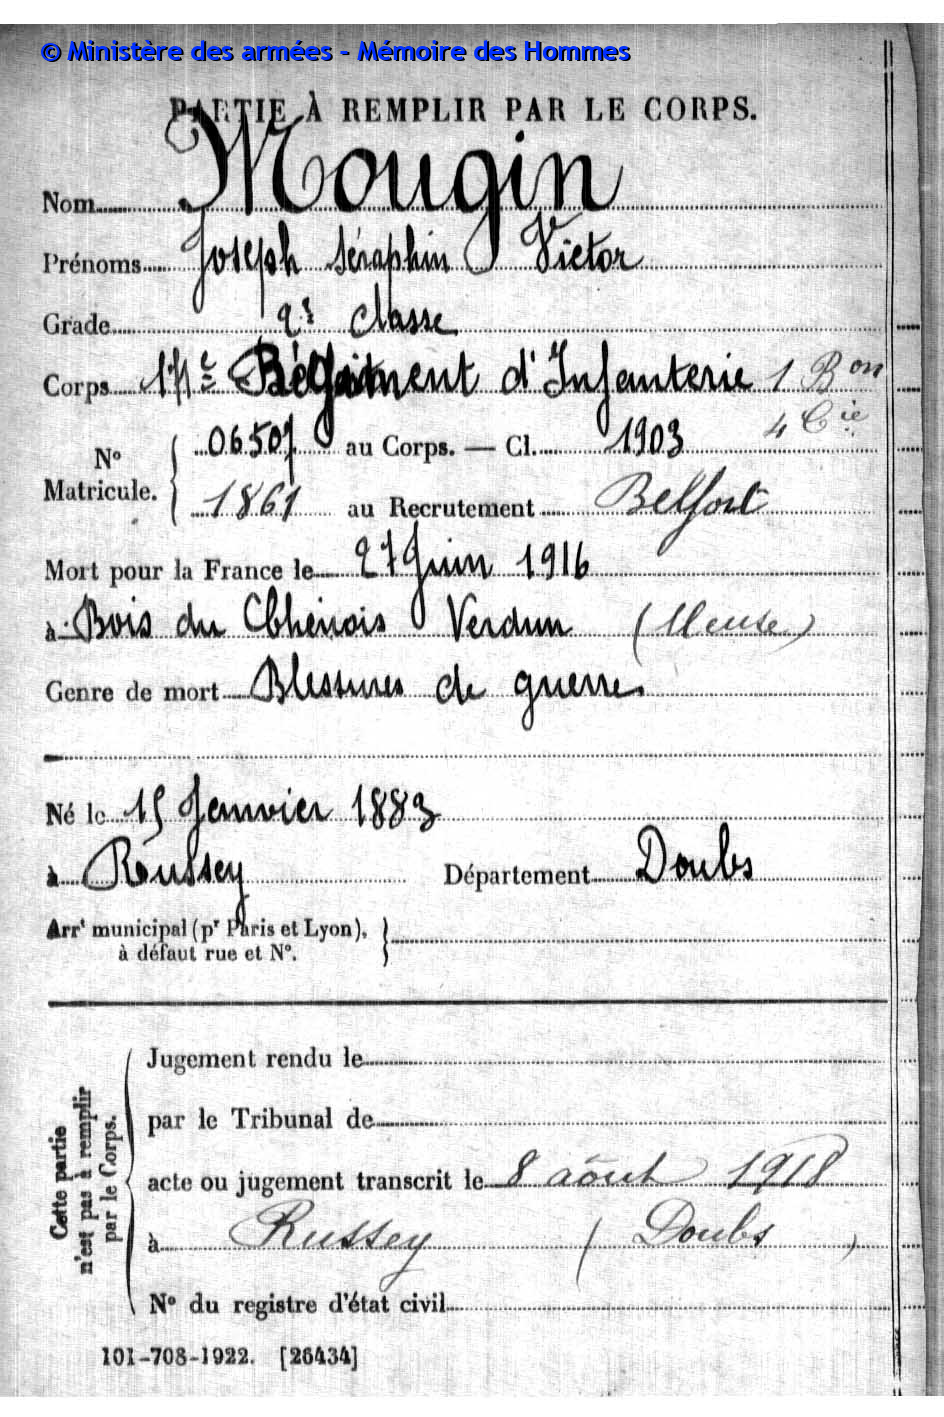 © Ministère des armées - Mémoire des Hommes
PARTIE À REMPLIR PAR LE CORPS.
Nom Mougin
Prénoms Joseph Séraphin Victor
Grade 2e classe
Corps 171e Régiment d'Infanterie 1 Bon
4 Cie
No Matricule. { 06507 au Corps. — Cl. 1903
1861 au Recrutement Belfort
Mort pour la France le 27 Juin 1916
à Bois du Chênois Verdun (Meuse)
Genre de mort Blessures de guerre.
Né le 15 Janvier 1883
à Russey Département Doubs
Arrt municipal (pr Paris et Lyon),
à défaut rue et No.
Cette partie n'est pas à remplir par le Corps.
Jugement rendu le
par le Tribunal de
acte ou jugement transcrit le 8 août 1918
à Russey (Doubs)
No du registre d'état civil
101-708-1922. [26434]